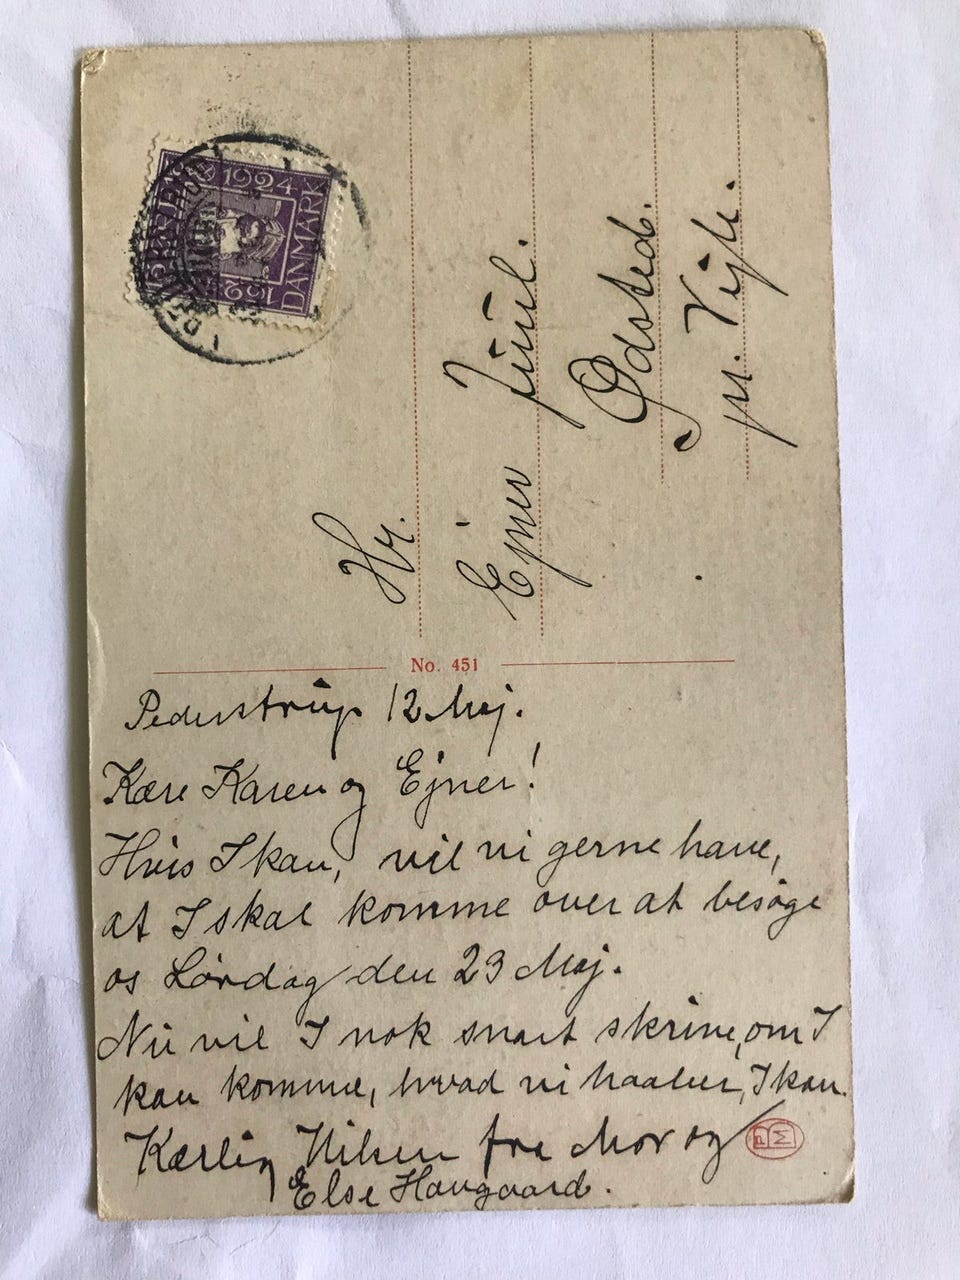 1924
DANMARK
1624
Hr.
Ejner Juul.
Ødsted.
pr. Vejle.
No. 451
Pederstrup 12 Maj.
Kære Karen og Ejner!
Hvis I kan, vil vi gerne have,
at I skal komme over at besøge
os Lørdag den 23 Maj.
Nu vil I nok snart skrive, om I
kan komme, hvad vi haaber, I kan.
Kærlig Hilsen fra Mor og
Else Haugaard.